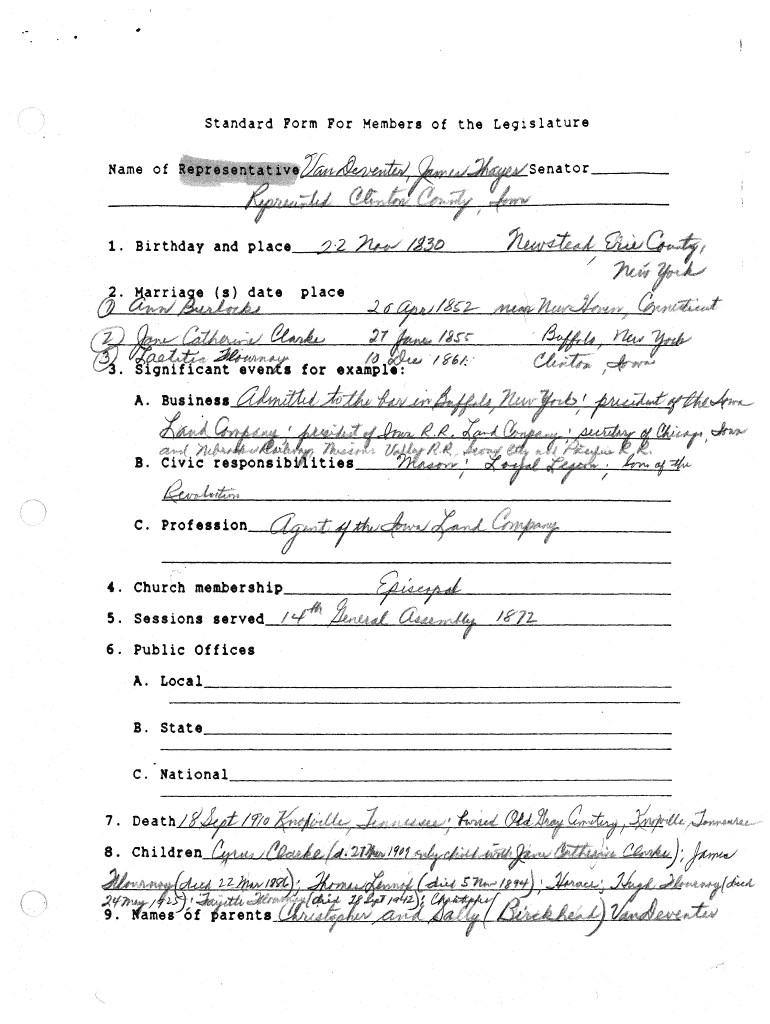 Standard Form For Members of the Legislature
Name of Representative VanDeventer, James Thayer Senator
Represented Clinton County, Iowa
1. Birthday and place 22 Nov 1830 Newstead, Erie County,
New York
2. Marriage (s) date place
① Ann Burlocks 20 Apr 1852 near New Haven, Connecticut
② Jane Catherine Clarke 27 June 1855 Buffalo, New York
③ Laetitia Flournoy 10 Dec 1861 Clinton Iowa
3. Significant events for example:
A. Business Admitted to the bar in Buffalo, New York; president of the Iowa
Land Company; president of Iowa R.R. Land Company; secretary of Chicago, Iowa
and Nebraska Railway, Missouri Valley R.R., Sioux City and Pacific R.R.
B. Civic responsibilities Mason; Loyal Legion; Sons of the
Revolution
C. Profession Agent of the Iowa Land Company
4. Church membership Episcopal
5. Sessions served 14th General Assembly 1872
6. Public Offices
A. Local
B. State
C. National
7. Death 18 Sept 1910 Knoxville, Tennessee; buried Old Gray Cemetery, Knoxville, Tennessee
8. Children Cyrus Clarke (d. 27 Mar 1909 only child with Jane Catherine Clarke); James
Flournoy (died 22 Mar 1886); Thomas Lennox (died 5 Nov 1894); Horace; Hugh Flournoy (died
24 May 1925); Fayette Flournoy (died 28 Sept 1942); Christopher
9. Names of parents Christopher and Sally (Birckhead) VanDeventer